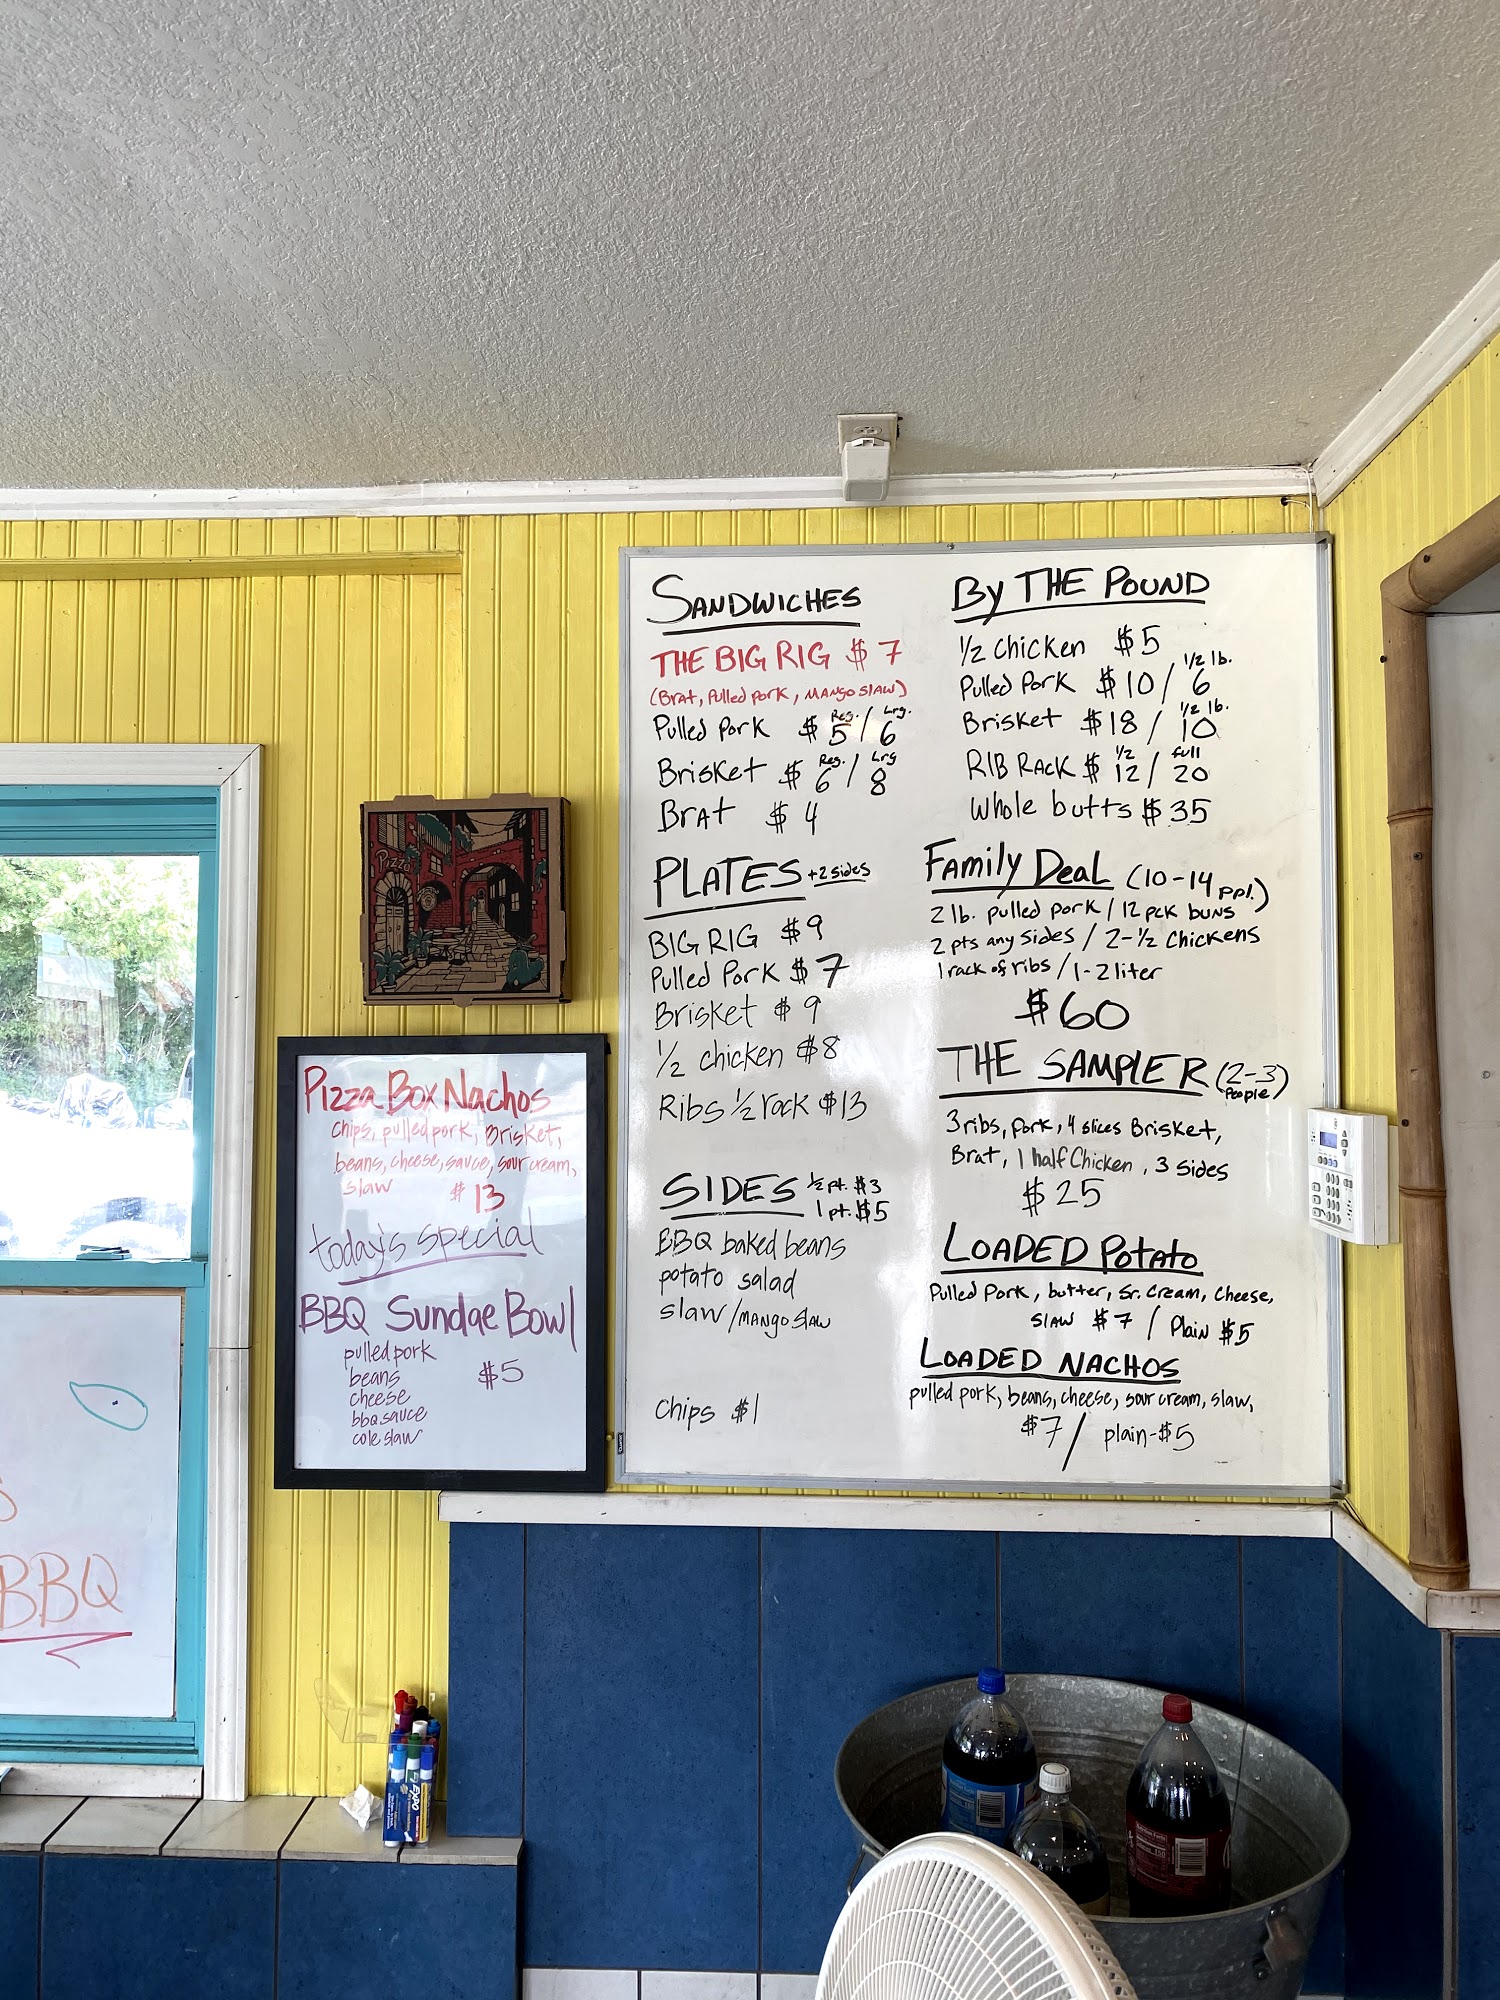 SANDWICHES
THE BIG RIG $7
(Brat, Pulled Pork, MANGO SLAW)
Reg. Lrg.
Pulled Pork $5/6
Reg. Lrg
Brisket $6/8
Brat $4
PLATES +2 sides
BIG RIG $9
Pulled Pork $7
Brisket $9
1/2 chicken $8
Ribs 1/2 rack $13
SIDES 1/2 pt. $3
1 pt. $5
BBQ baked beans
potato salad
slaw/MANGO SLAW
Chips $1
By THE POUND
1/2 Chicken $5
1/2 lb.
Pulled Pork $10/6
1/2 lb.
Brisket $18/10
1/2 full
RIB RACK $12/20
Whole butts $35
Family Deal (10-14 ppl.)
2 lb. pulled pork / 12 pck buns
2 pts any sides / 2-1/2 Chickens
1 rack of ribs / 1-2 liter
$60
THE SAMPLER (2-3 People)
3 ribs, pork, 4 slices Brisket,
Brat, 1 half Chicken, 3 sides
$25
LOADED Potato
Pulled Pork, butter, sr. cream, cheese,
slaw $7 / Plain $5
LOADED NACHOS
pulled pork, beans, cheese, sour cream, slaw,
$7 / plain-$5
Pizza
Pizza Box Nachos
chips, pulled pork, Brisket,
beans, cheese, sauce, sour cream,
slaw $13
today's special
BBQ Sundae Bowl
pulled pork
beans $5
cheese
bbq sauce
cole slaw
BBQ
EXPO